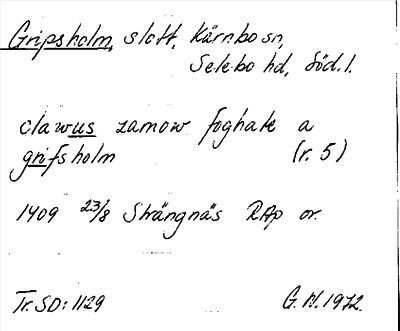 Gripsholm, slott, Kärnbo sn,
Selebo hd, Söd. l.
clawus zamow foghate a
grifsholm (r. 5)
1409 23/8 Strängnäs RAp or.
Tr. SD: 1129 G. H. 1972.